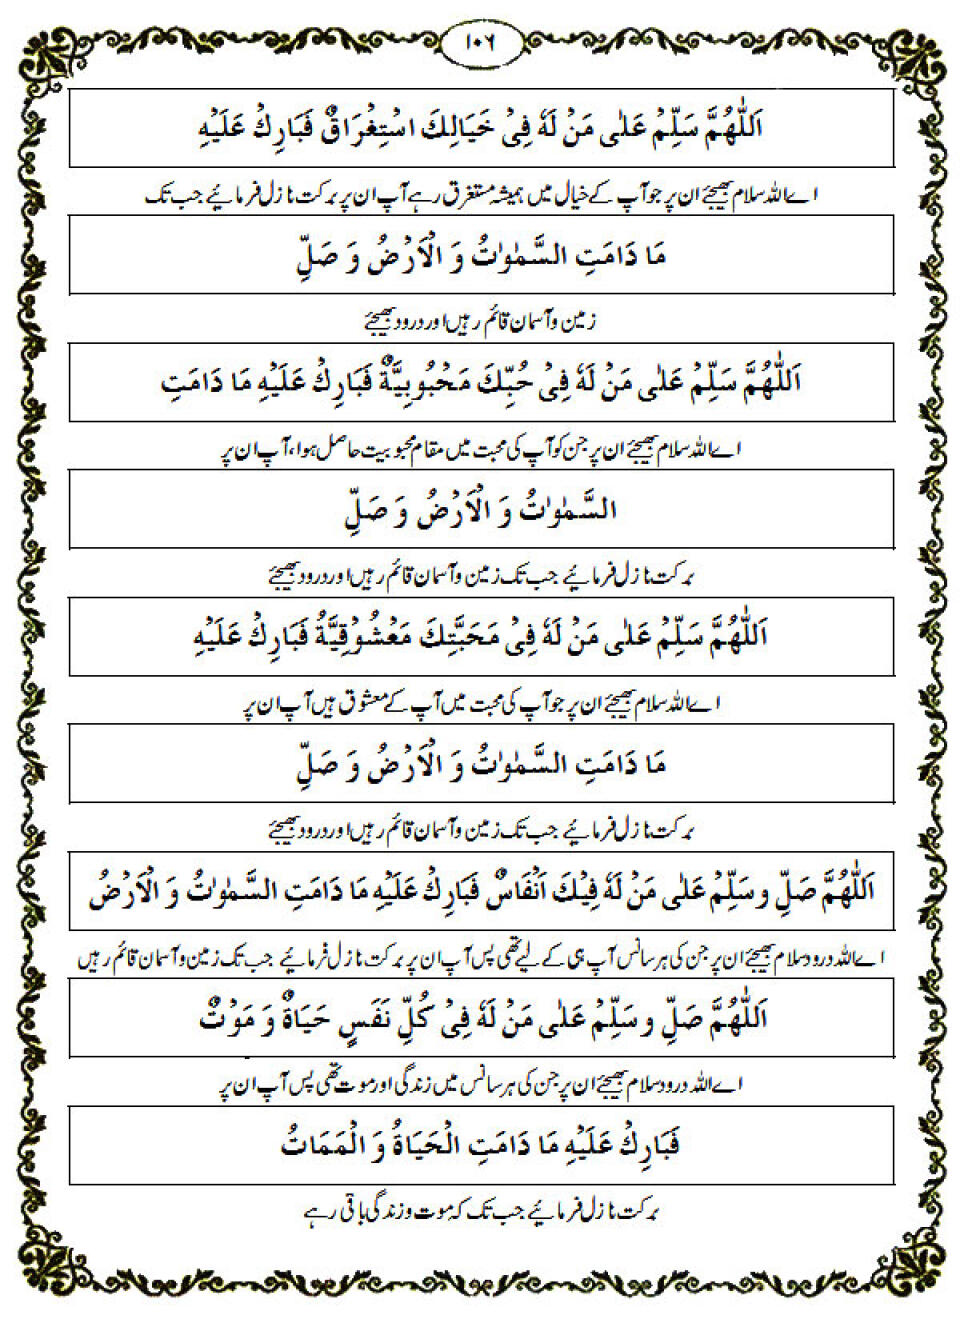 ١٠٦
اَللّٰهُمَّ سَلِّمْ عَلٰى مَنْ لَهٗ فِىْ خَيَالِكَ اسْتِغْرَاقٌ فَبَارِكْ عَلَيْهِ
اے اللہ سلام بھیجئے ان پر جو آپ کے خیال میں ہمیشہ مستغرق رہے آپ ان پر برکت نازل فرمائیے جب تک
مَا دَامَتِ السَّمٰوٰتُ وَ الْاَرْضُ وَ صَلِّ
زمین و آسمان قائم رہیں اور درود بھیجئے
اَللّٰهُمَّ سَلِّمْ عَلٰى مَنْ لَهٗ فِىْ حُبِّكَ مَحْبُوبِيَّةٌ فَبَارِكْ عَلَيْهِ مَا دَامَتِ
اے اللہ سلام بھیجئے ان پر جن کو آپ کی محبت میں مقام محبوبیت حاصل ہوا، آپ ان پر
السَّمٰوٰتُ وَ الْاَرْضُ وَ صَلِّ
برکت نازل فرمائیے جب تک زمین و آسمان قائم رہیں اور درود بھیجئے
اَللّٰهُمَّ سَلِّمْ عَلٰى مَنْ لَهٗ فِىْ مَحَبَّتِكَ مَعْشُوْقِيَّةٌ فَبَارِكْ عَلَيْهِ
اے اللہ سلام بھیجئے ان پر جو آپ کی محبت میں آپ کے معشوق ہیں آپ ان پر
مَا دَامَتِ السَّمٰوٰتُ وَ الْاَرْضُ وَ صَلِّ
برکت نازل فرمائیے جب تک زمین و آسمان قائم رہیں اور درود بھیجئے
اَللّٰهُمَّ صَلِّ وسَلِّمْ عَلٰى مَنْ لَهٗ فِيْكَ اَنْفَاسٌ فَبَارِكْ عَلَيْهِ مَا دَامَتِ السَّمٰوٰتُ وَ الْاَرْضُ
اے اللہ درود سلام بھیجئے ان پر جن کی ہر سانس آپ ہی کے لیے تھی پس آپ ان پر برکت نازل فرمائیے جب تک زمین و آسمان قائم رہیں
اَللّٰهُمَّ صَلِّ وسَلِّمْ عَلٰى مَنْ لَهٗ فِىْ كُلِّ نَفَسٍ حَيَاةٌ وَ مَوْتٌ
اے اللہ درود سلام بھیجئے ان پر جن کی ہر سانس میں زندگی اور موت تھی پس آپ ان پر
فَبَارِكْ عَلَيْهِ مَا دَامَتِ الْحَيَاةُ وَ الْمَمَاتُ
برکت نازل فرمائیے جب تک کہ موت و زندگی باقی رہے